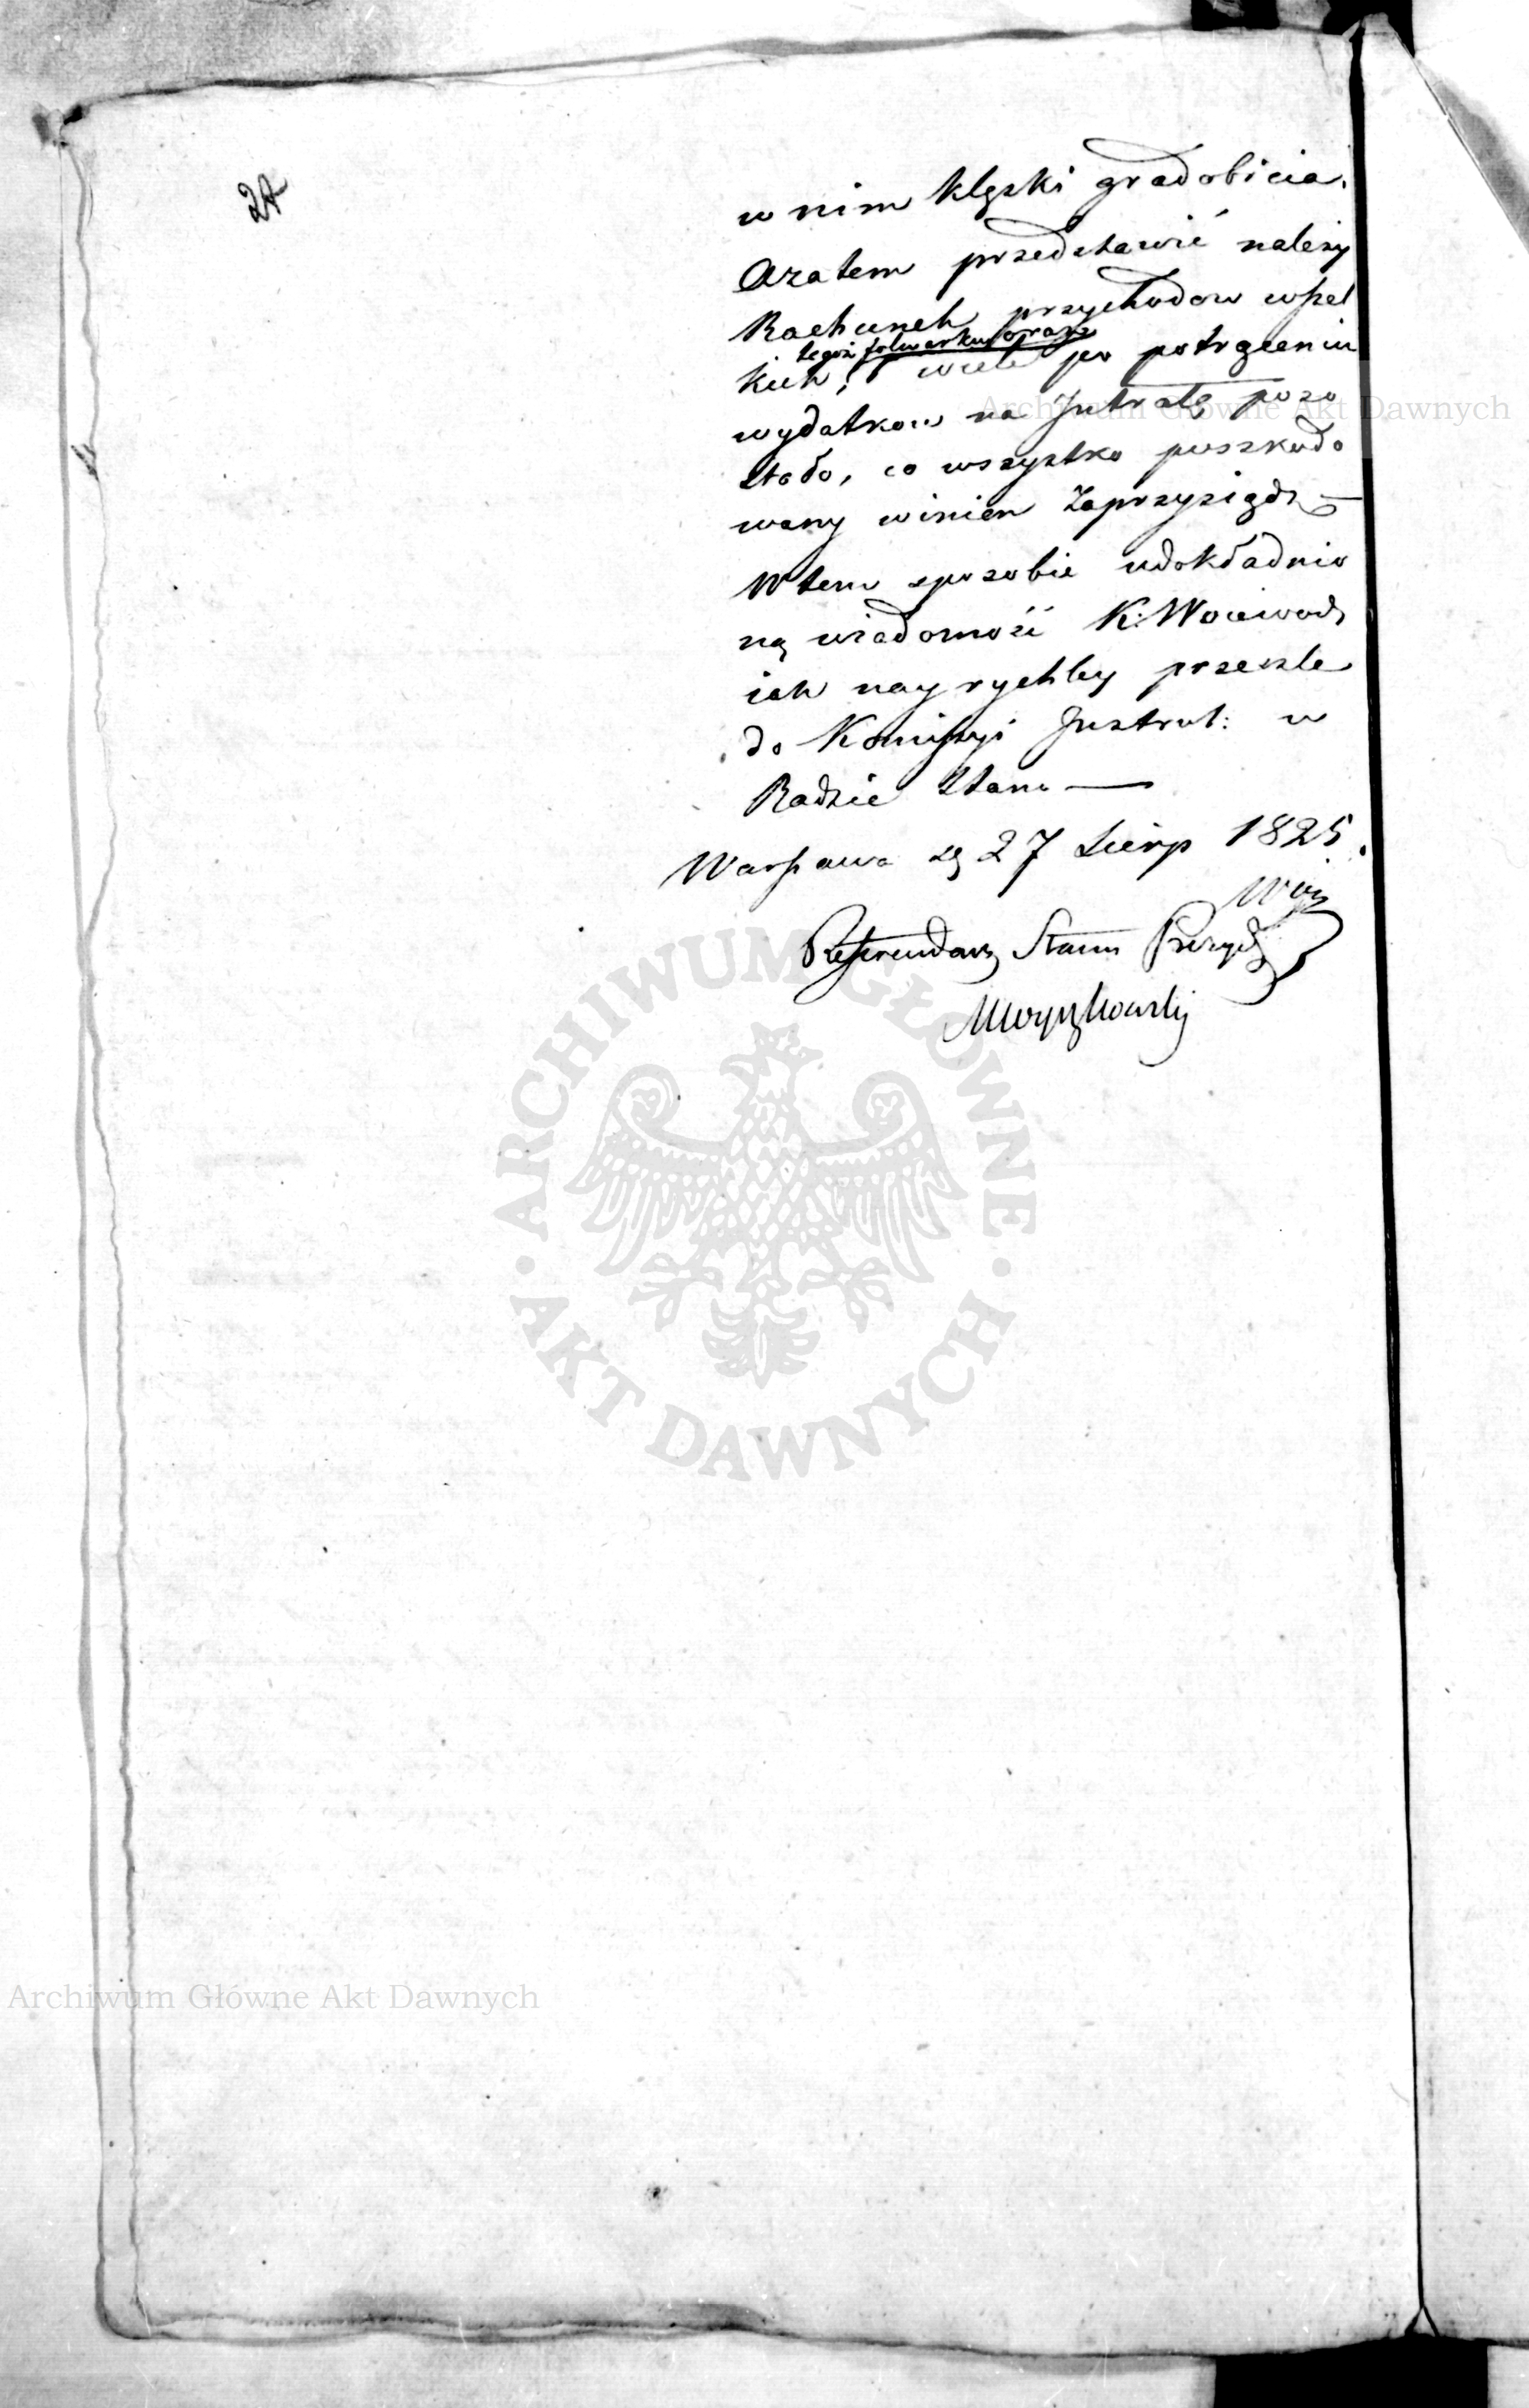 24
w nim klęski gradobicia.
Azatem przedstawić należy
Rachunek przychodow wszel
tegoż folwarku oraz
kich, wiele po potrąceniu
wydatkow na Intratę pozo
stało, co wszystko poszkodo
wany winien zaprzysiądz —
W tem sposobie udokładnio
ną wiadomość K: Woiewodz
iak nayrychley przeszle
do Komissyi Instrut: w
Radzie Stanu —
Warszawa dq 27 Sierp 1825.
Referendarz Stanu Prezyd
Archiwum Główne Akt Dawnych
ARCHIWUM GŁÓWNE
AKT DAWNYCH
Archiwum Główne Akt Dawnych